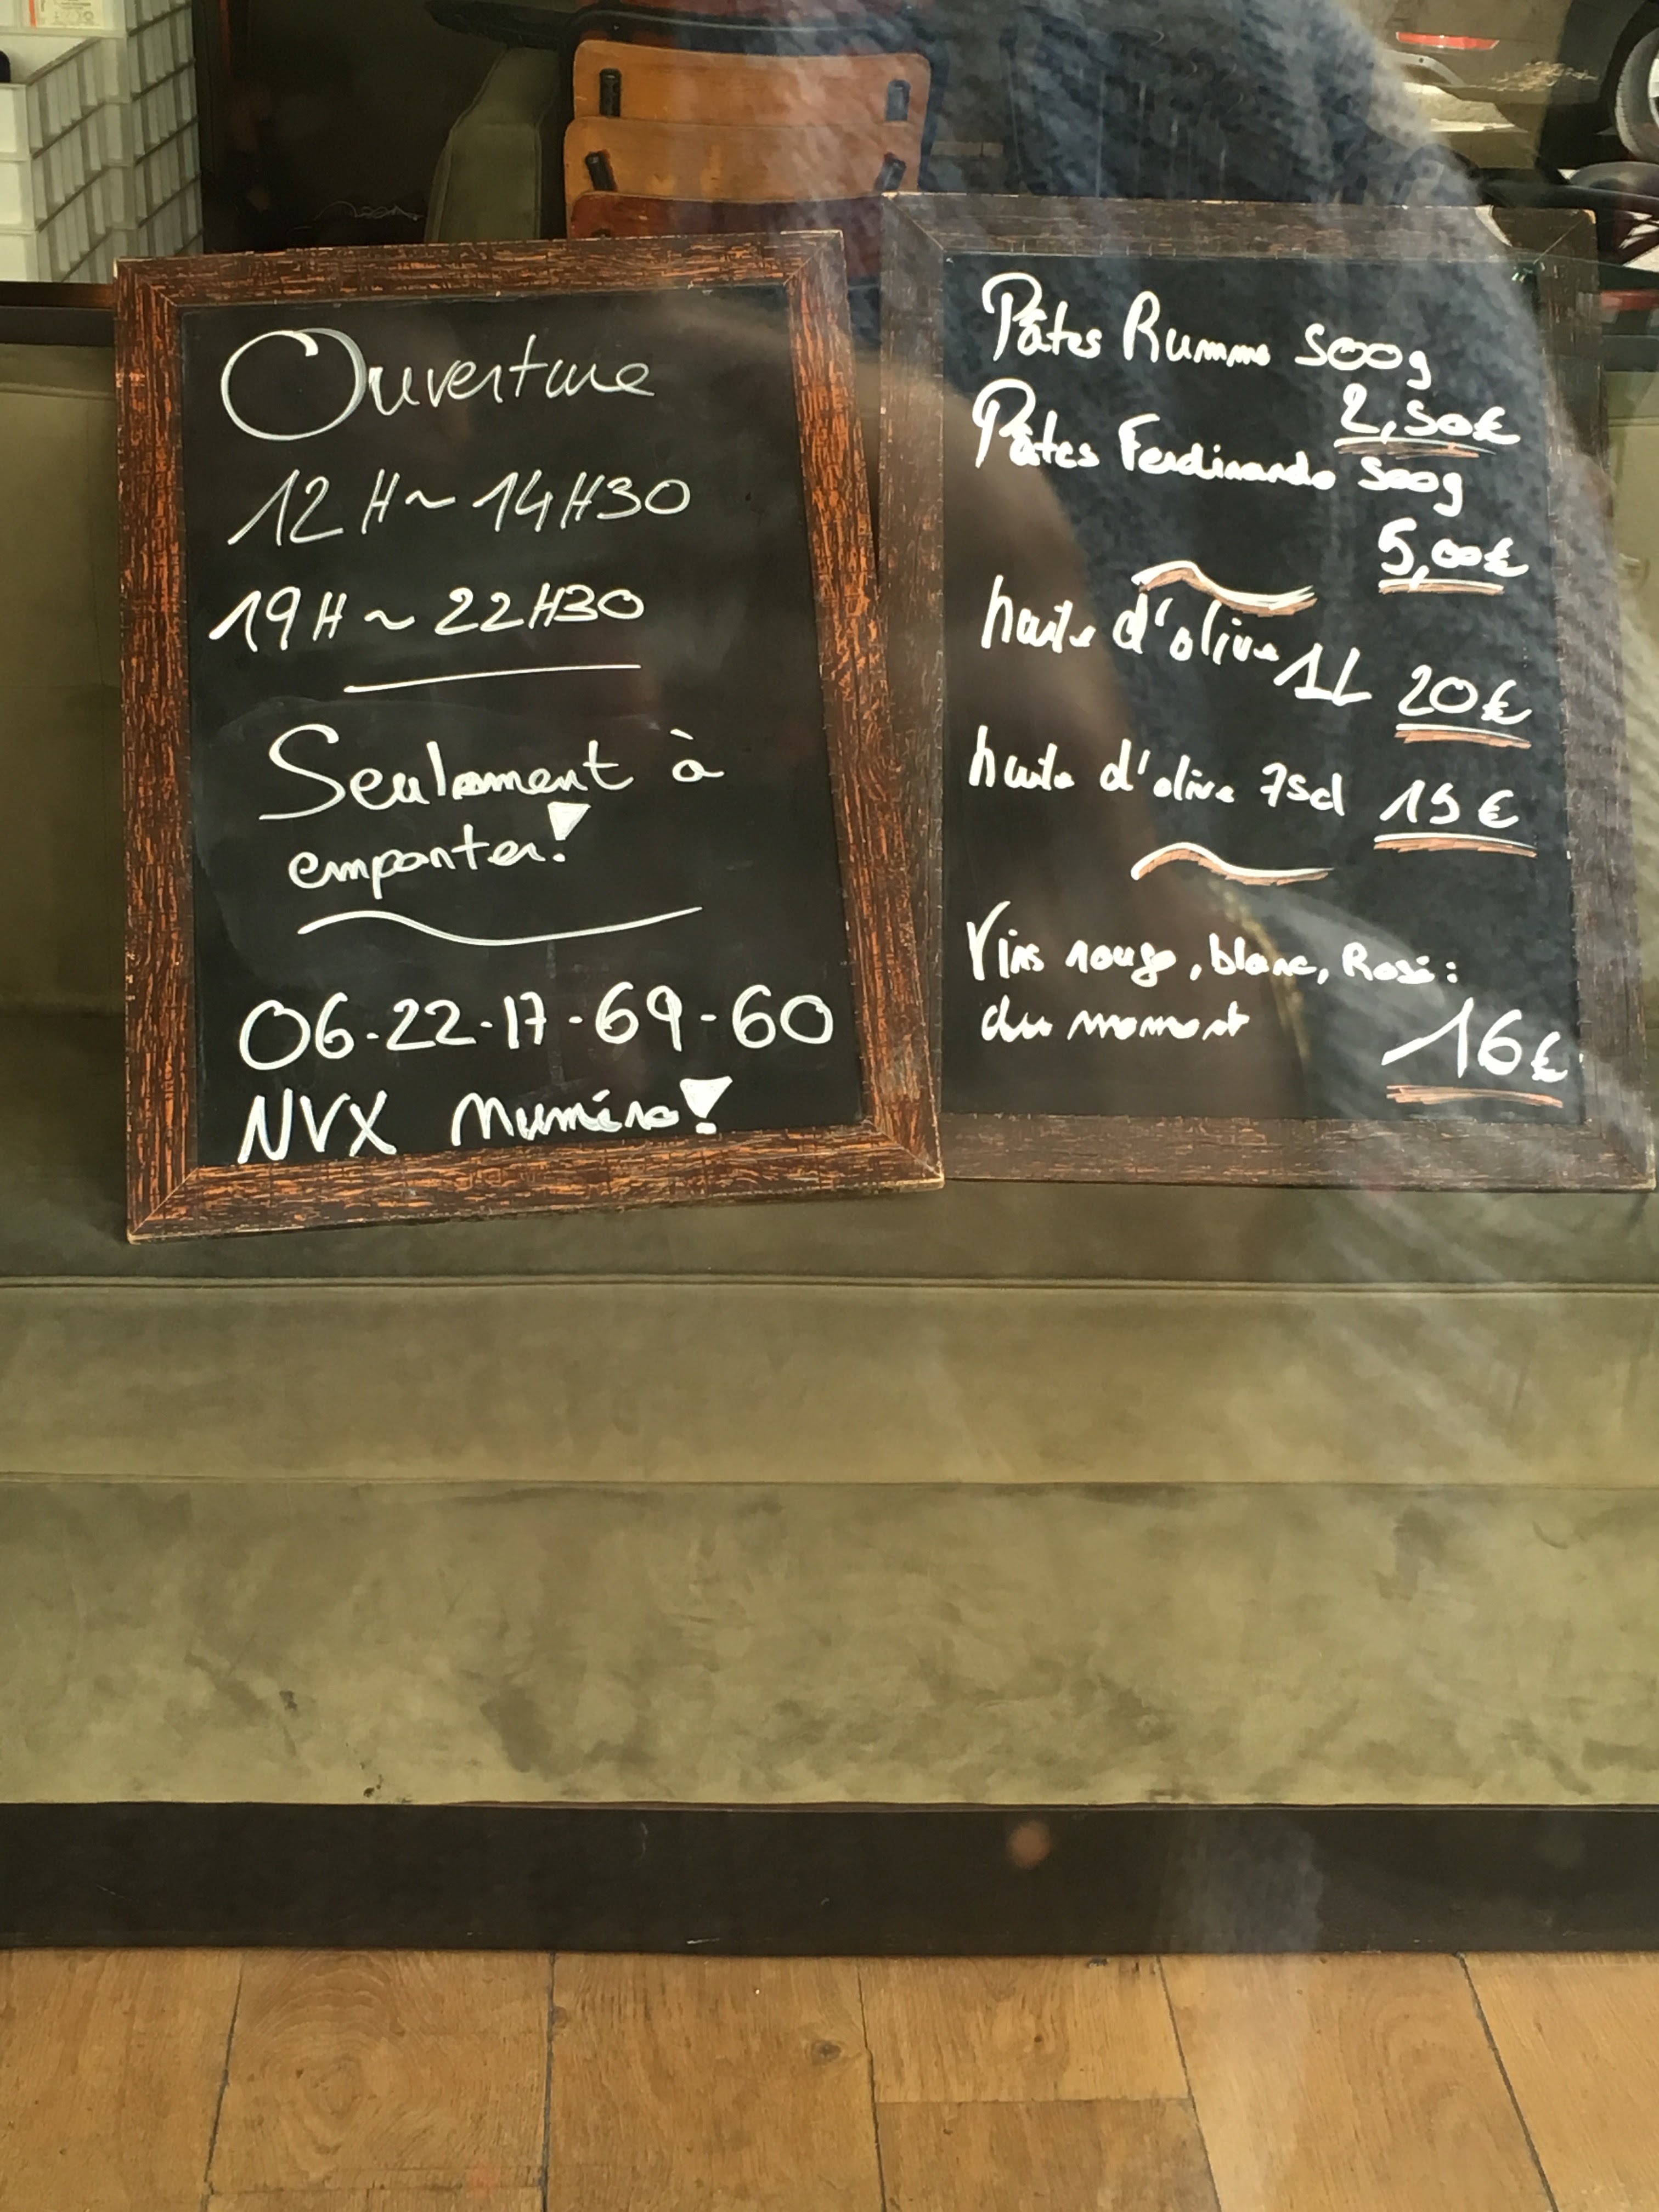 Ouverture
12H~14H30
19H~22H30
Seulement à
emporter!
06-22-17-69-60
NVX Numéro!
Pâtes Rummo 500g
2,50€
Pâtes Ferdinando 500g
5,00€
huile d'olive 1L 20€
huile d'olive 75cl 15€
Vins rouge, blanc, Rosé:
du moment
16€